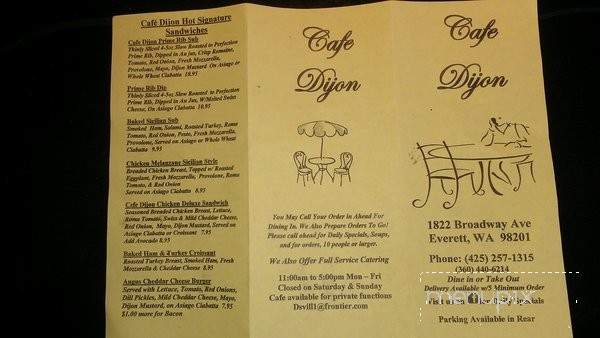 Café Dijon Hot Signature
Sandwiches
Cafe Dijon Prime Rib Sub
Thinly Sliced 4-5oz Slow Roasted to Perfection
Prime Rib, Dipped in Au jus, Crisp Romaine,
Tomato, Red Onion, Fresh Mozzarella,
Provolone, Mayo, Dijon Mustard On Asiago or
Whole Wheat Ciabatta 10.95
Prime Rib Dip
Thinly Sliced 4-5oz Slow Roasted to Perfection
Prime Rib, Dipped in Au Jus, W/Melted Swiss
Cheese, On Asiago Ciabatta 10.95
Baked Sicilian Sub
Smokey Ham, Salami, Roasted Turkey, Roma
Tomato, Red Onion, Pesto, Fresh Mozzarella,
Provolone, Served on Asiago or Whole Wheat
Ciabatta 9.95
Chicken Melanzane Sicilian Style
Breaded Chicken Breast, Topped w/ Roasted
Eggplant, Fresh Mozzarella, Provolone, Roma
Tomato, & Red Onion
Served on Asiago Ciabatta 8.95
Cafe Dijon Chicken Deluxe Sandwich
Seasoned Breaded Chicken Breast, Lettuce,
Rima Tomato, Swiss & Mild Cheddar Cheese,
Red Onion, Mayo, Dijon Mustard, Served on
Asiago Ciabatta or Croissant 7.95
Add Avocado 8.95
Baked Ham & Turkey Croissant
Roasted Turkey Breast, Smoked Ham, Fresh
Mozzarella & Cheddar Cheese 8.95
Angus Cheddar Cheese Burger
Served with Lettuce, Tomato, Red Onions,
Dill Pickles, Mild Cheddar Cheese, Mayo,
Dijon Mustard, on Asiago Ciabatta 7.95
$1.00 more for Bacon
Cafe
Dijon
You May Call Your Order in Ahead For
Dining In. We Also Prepare Orders To Go!
Please call ahead for Daily Specials, Soups,
and for orders, 10 people or larger.
We Also Offer Full Service Catering
11:00am to 5:00pm Mon – Fri
Closed on Saturday & Sunday
Cafe available for private functions
Dsvill1@frontier.com
Cafe
Dijon
1822 Broadway Ave
Everett, WA 98201
Phone: (425) 257-1315
(360) 440-6214
Dine in or Take Out
Delivery Available w/5 Minimum Order
menupix
Daily Specials
Parking Available in Rear